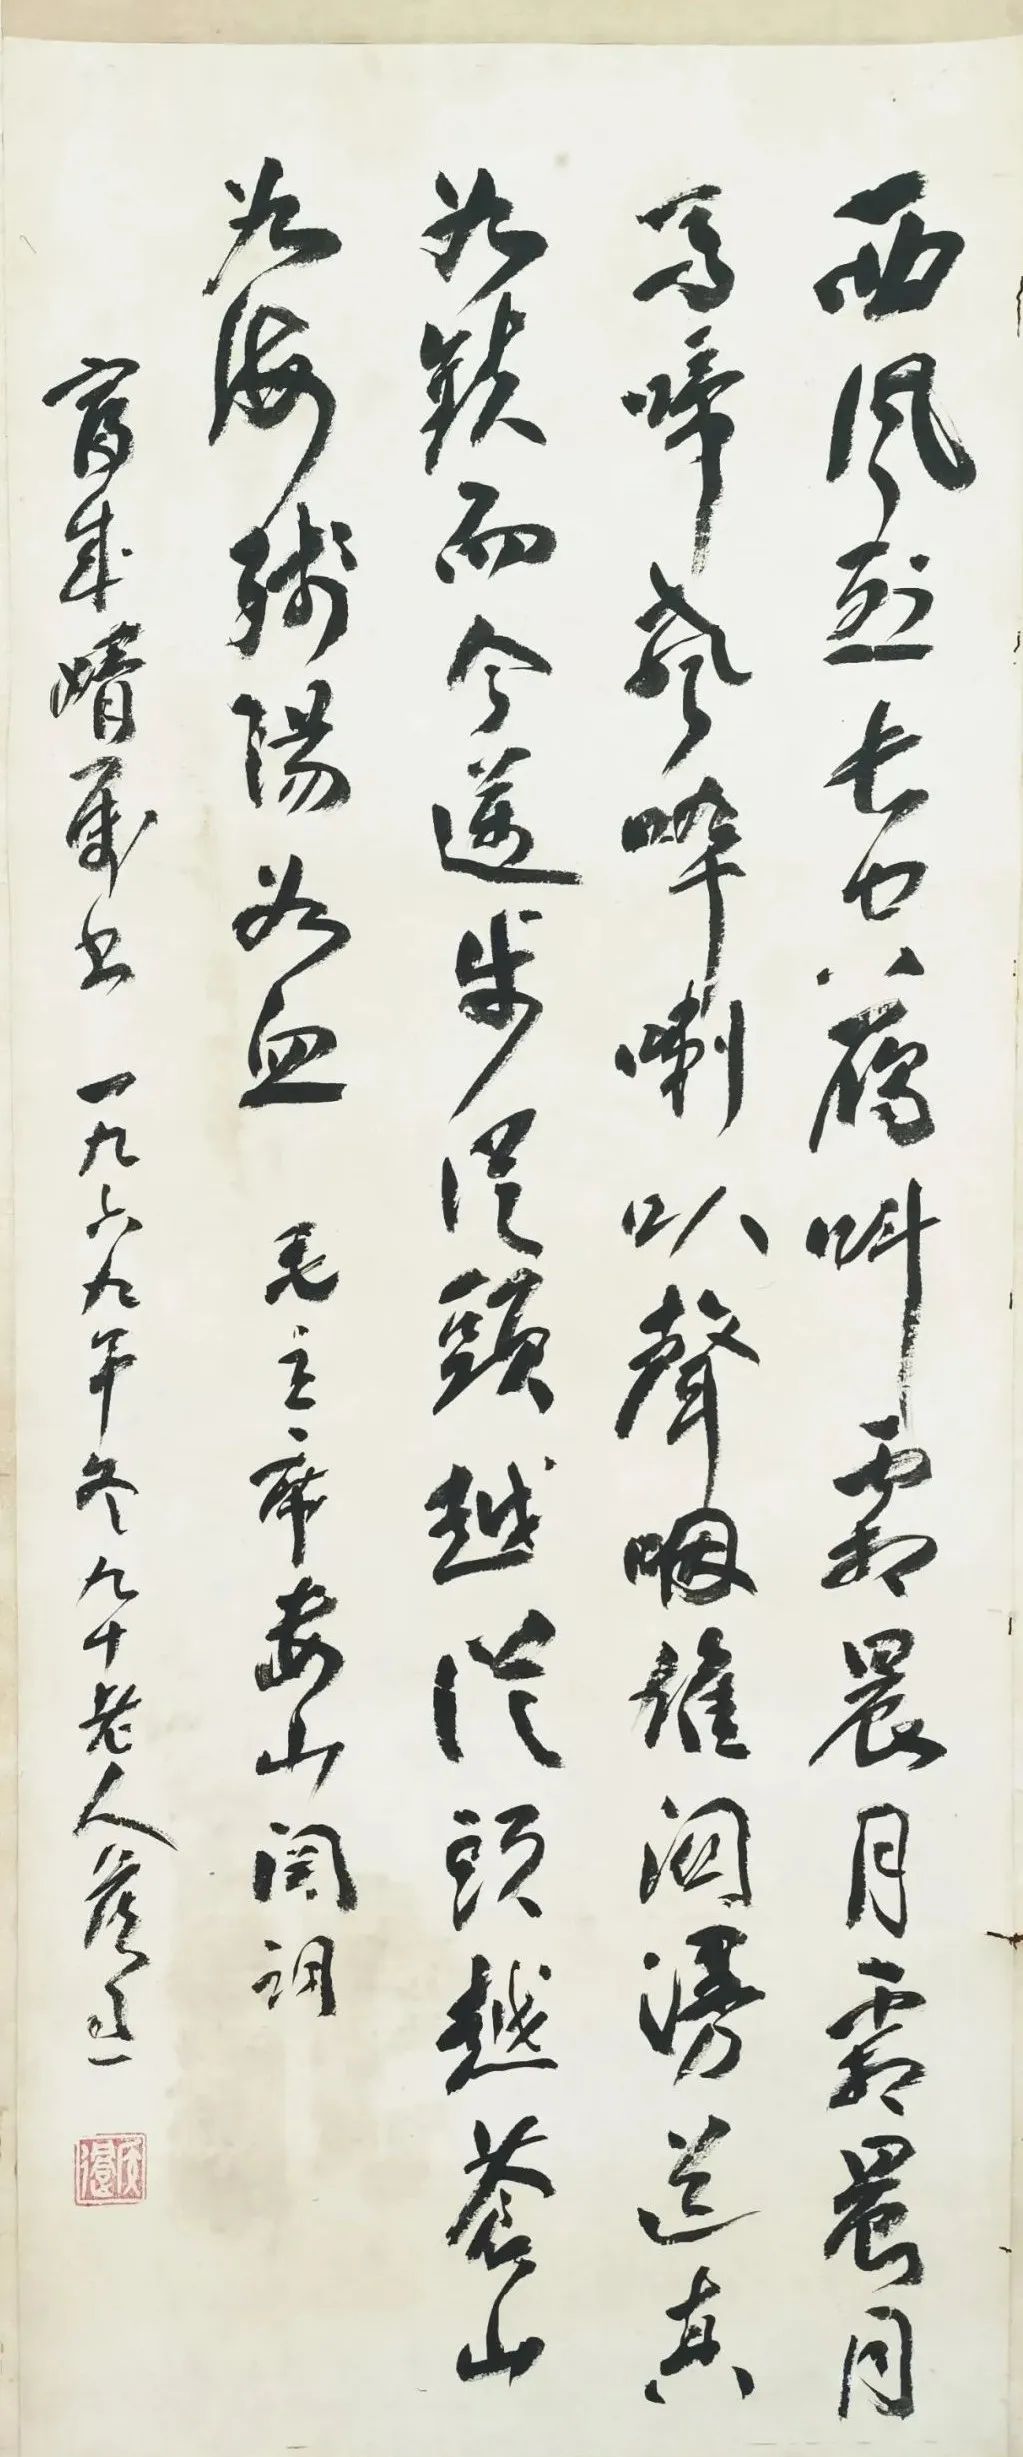 西風烈長空雁叫霜晨月霜晨月
馬啼聲碎喇叭聲咽雄関漫道真
如鉄而今邁步從頭越從頭越蒼山
如海殘陽如血 毛主席婁山関詞
富成婿屬书 一九六九年冬九十老人